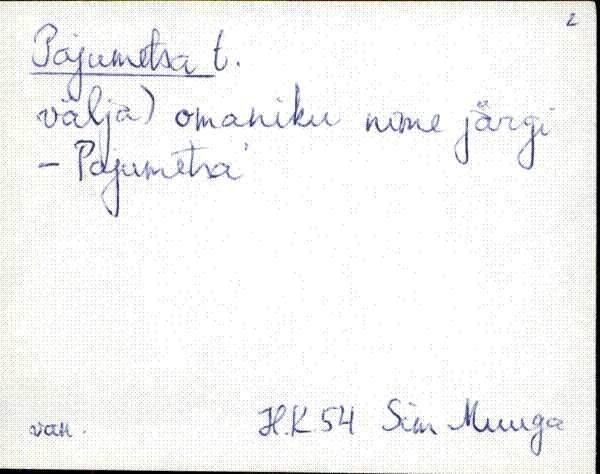 2
Pajumetsa t.
välja) omaniku nime järgi
- Pajumetsa'
van.
H.K.54 Sim Muuga